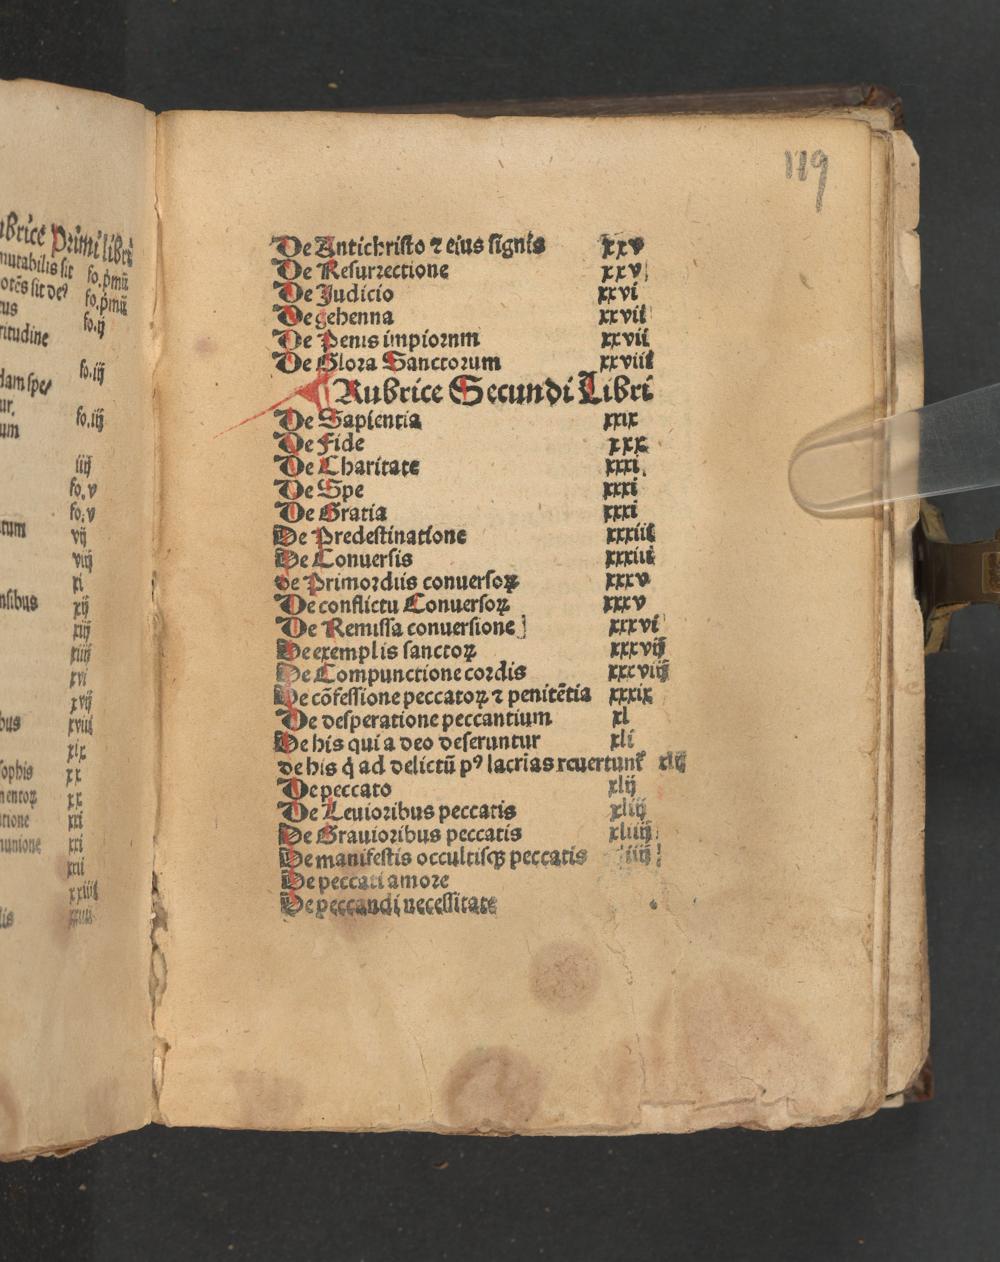 ubrice Primi libri
mutabilis sit fo.p̃mũ
otẽs sit deꝰ fo.p̃mũ
tus fo.ij
ritudine
fo.iij
dam spe/
ur.
um fo.iij
iiij
fo.v
fo.v
tum vij
viij
xi
nsibus xij
xiij
xiiij
xvi
xvij
bus xviij
xix
sophis xx
mentoꝝ xx
tatione xxi
munione xxi
xxii
xxiiij
lis
119
De Antichristo ⁊ eius signis xxv
De Resurrectione xxv
De Judicio xxvi
De gehenna xxvii
De Penis impiornm xxvii
De Glora Sanctorum xxviii
¶ Rubrice Secundi Libri
De Sapientia xxix
De Fide xxx
De Charitate xxxi
De Spe xxxi
De Gratia xxxi
De Predestinatione xxxiii
De Conuersis xxxiii
de Primordiis conuersoꝝ xxxv
De conflictu Conuersoꝝ xxxv
De Remissa conuersione xxxvi
De exemplis sanctoꝝ xxxvij
De Compunctione cordis xxxviij
De cõfessione peccatoꝝ ⁊ penitẽtia xxxix
De desperatione peccantium xl
De his qui a deo deseruntur xli
de his q̇ ad delictũ pꝰ lacrias reuertunt᷑ xlij
De peccato xlij
De Leuioribus peccatis xliij
De Grauioribus peccatis xliiij
De manifestis occultisqꝫ peccatis
De peccati amore
De peccandi necessitate